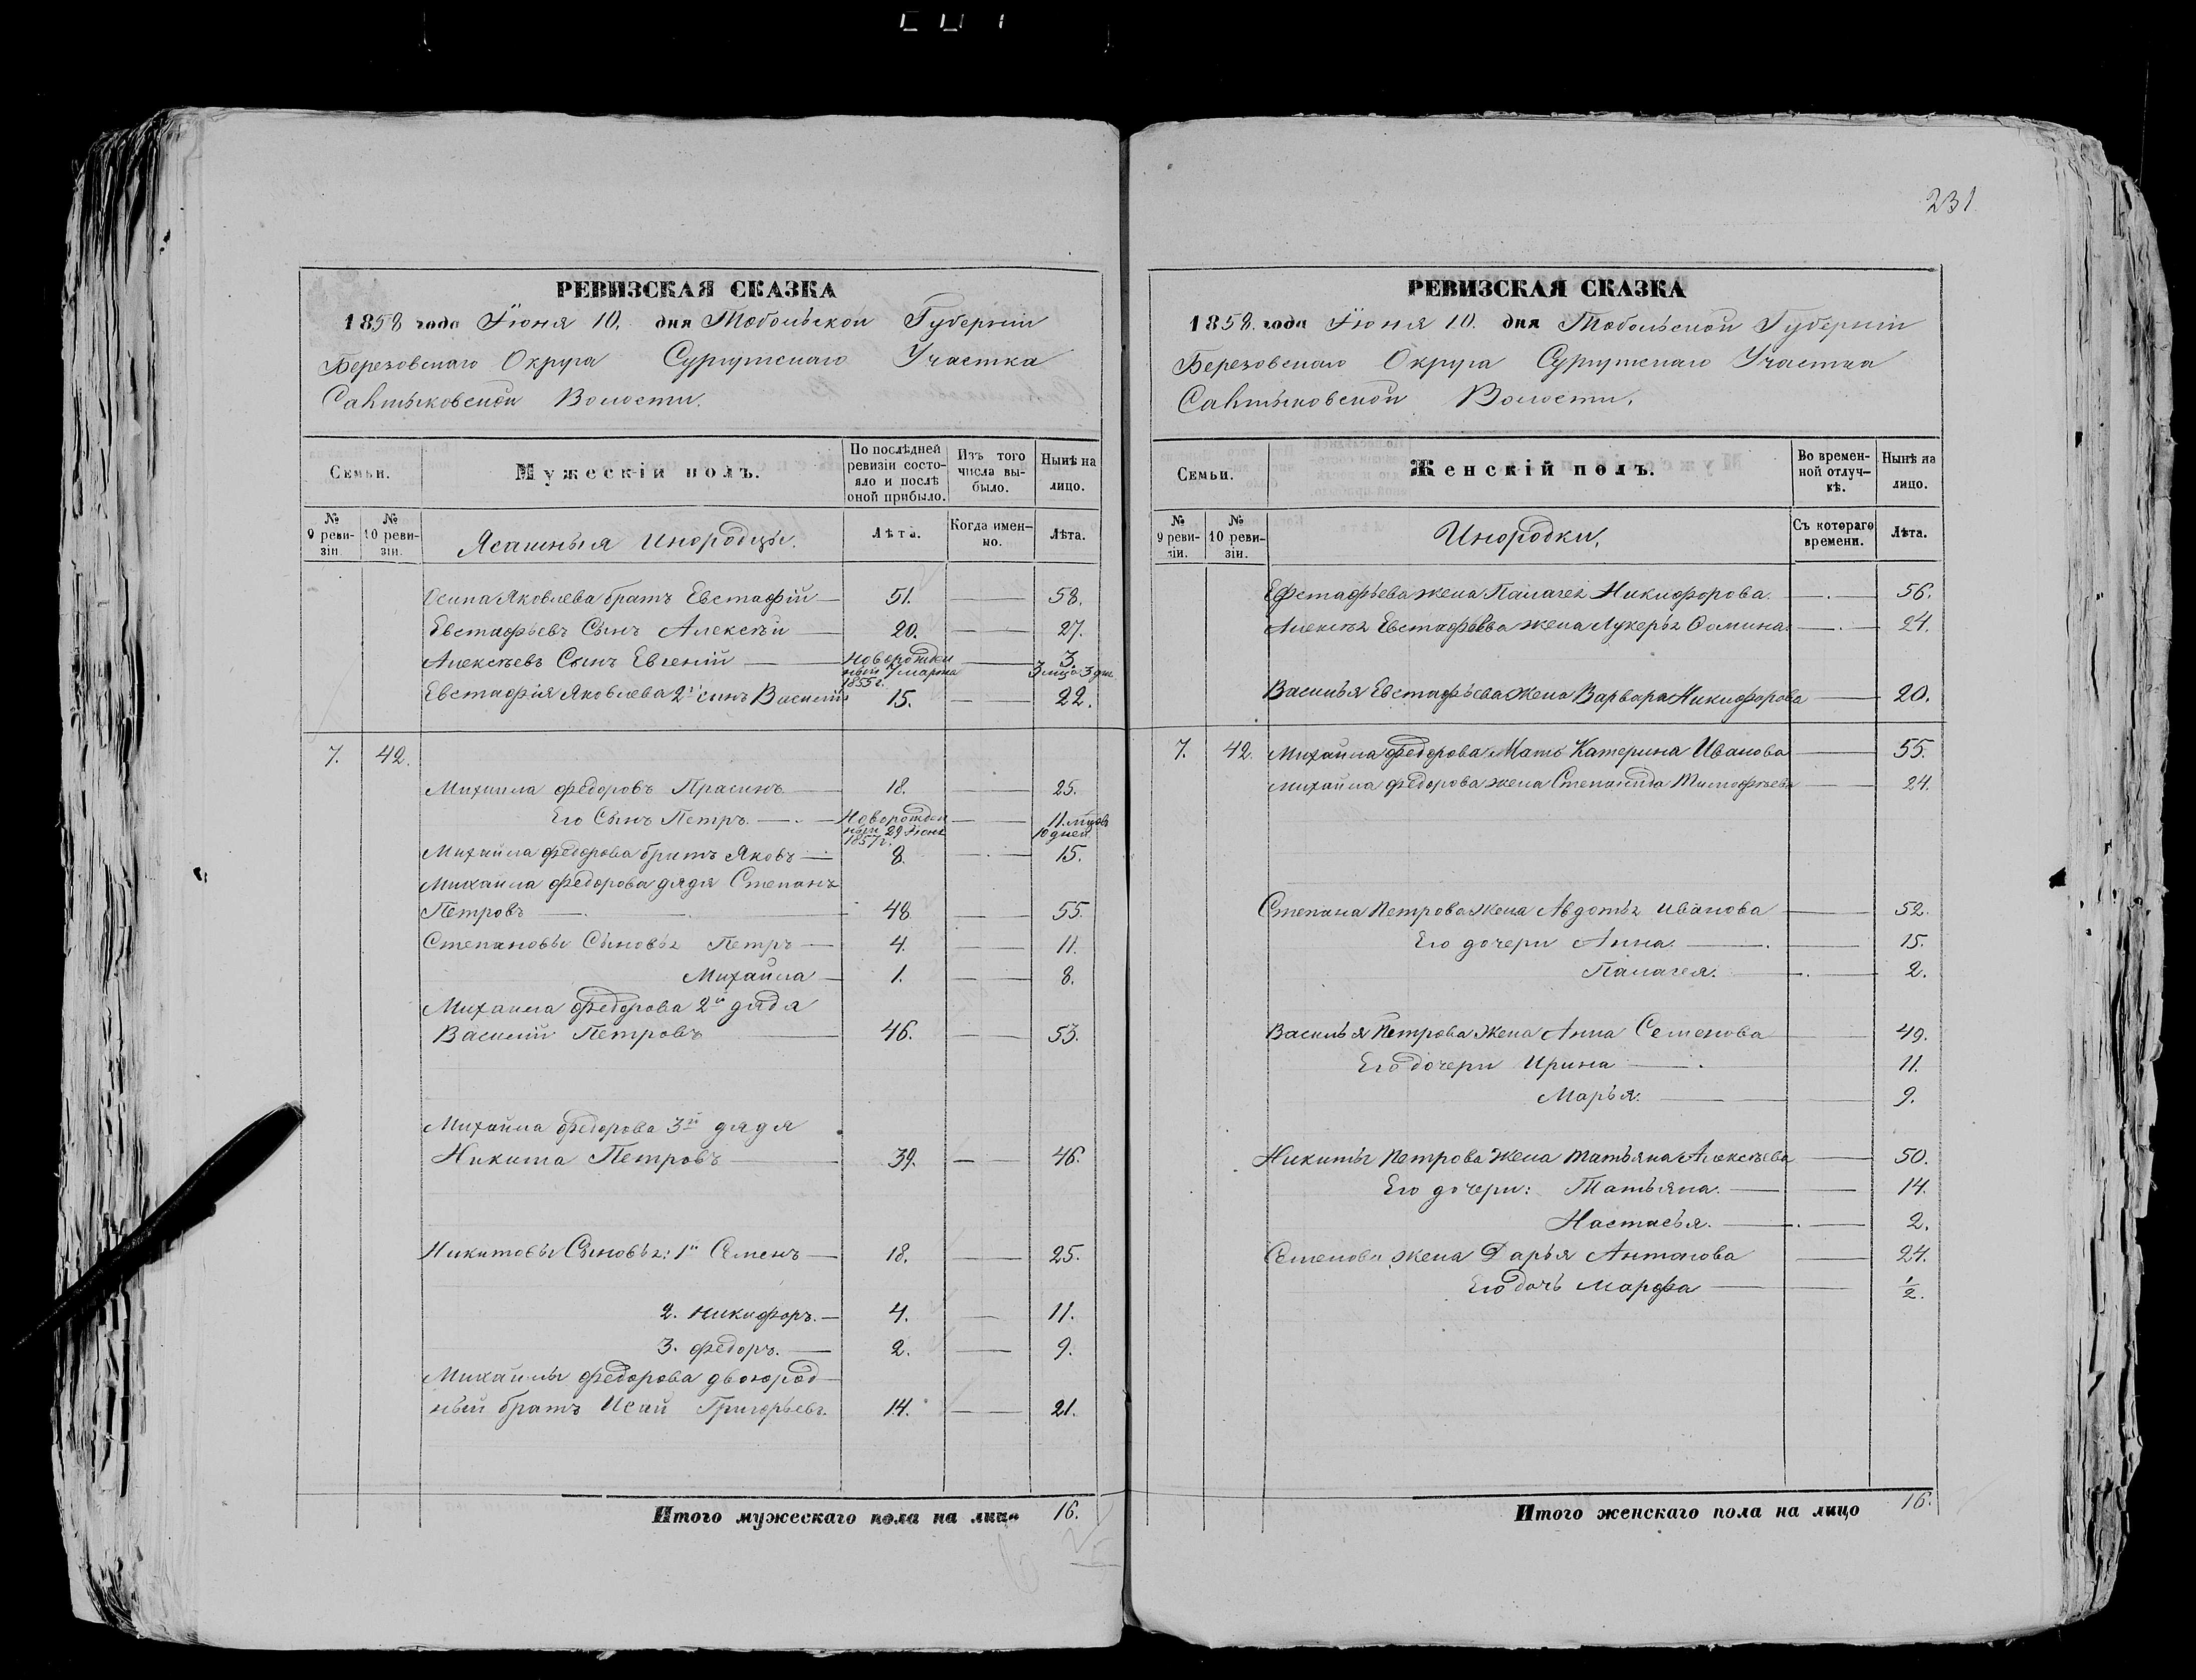 231
РЕВИЗСКАЯ СКАЗКА
1858 года Іюня 10. дня Тобольской Губерніи
Березовскаго Округа Сургутскаго Участка
Салтыковской Волости.
Семьи.
Мужескій полъ.
По послѣдней ревизіи состояло и послѣ оной прибыло.
Изъ того числа выбыло.
Нынѣ на лицо.
№ 9 ревизіи.
№ 10 ревизіи.
Ясашныя Инородцы.
Лѣта.
Когда именно.
Лѣта.
Осипа Яковлева братъ Евстафій 51. 58.
Евстафьевъ Сынъ Алексѣй 20. 27.
Алексѣевъ Сынъ Евгеній Новорожденный 7 марта 1855 г. 3. 3 мца 3 дн.
Евстафія Яковлева 2й сынъ Василій 15. 22.
7. 42.
Михаила Федоровъ Прасинъ 18. 25.
Его Сынъ Петръ Новорожденный 29 Іюня 1857 г. 11. мцовъ 10 дней
Михайла Федорова братъ Яковъ 8. 15.
Михаила Федорова дядя Степанъ
Петровъ 48. 55.
Степановы Сыновья Петръ 4. 11.
Михайла 1. 8.
Михаила Федорова 2й дядя
Василій Петровъ 46. 53.
Михайла Федорова 3й дядя
Никита Петровъ 39. 46.
Никитовы Сыновья: 1й Семенъ 18. 25.
2. Никифоръ. 4. 11.
3. Федоръ. 2. 9.
Михайлы Федорова двоюрод
ный братъ Исай Григорьевъ. 14. 21.
Итого мужескаго пола на лицо 16.
РЕВИЗСКАЯ СКАЗКА
1858. года Іюня 10. дня Тобольской Губерніи
Березовскаго Округа Сургутскаго Участка
Салтыковской Волости.
Семьи.
Женскій полъ.
Во временной отлучкѣ.
Нынѣ на лицо.
№ 9 ревизіи.
№ 10 ревизіи.
Инородки.
Съ котораго времени.
Лѣта.
Ефстафьева жена Палагея Никифорова. 56.
Алексѣя Евстафьева жена Лукерья Фомина 24.
Василья Евстафьева жена Варвара Никифорова 20.
7. 42. Михайла Федорова Мать Катерина Иванова 55.
Михайла Федорова жена Степанида Тимофѣева 24.
Степана Петрова жена Авдотья Иванова 52.
Его дочери Анна. 15.
Палагея. 2.
Василья Петрова жена Анна Семенова 49.
Его дочери Ирина 11.
Марья. 9.
Никиты Петрова жена Татьяна Алексѣева 50.
Его дочери: Татьяна. 14.
Настасья. 2.
Семенова жена Дарья Антонова 24.
Его дочь Марфа 1/2.
Итого женскаго пола на лицо 16.